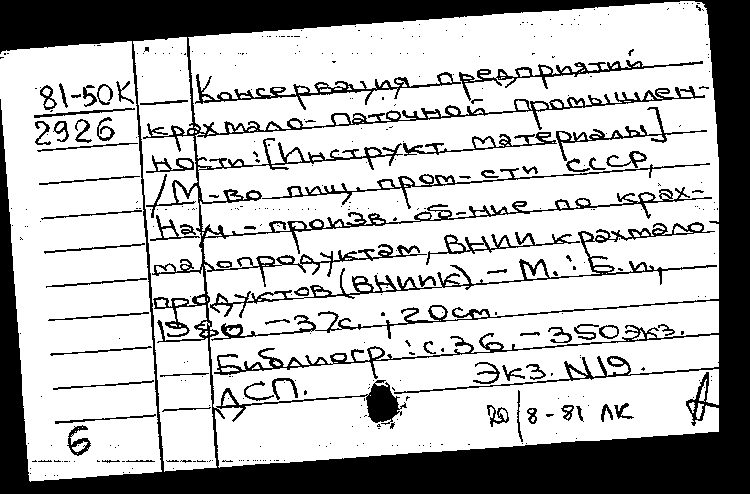 81-50К Консервация предприятий
2926 крахмало-паточной промышлен-
ности: [Инструкт. материалы]
/М-во пищ. пром-сти СССР,
Науч.-произв. об-ние по крах-
малопродуктам, ВНИИ крахмало-
продуктов (ВНИИК). - М.: Б.и.,
1980. - 37с.; 20см.
Библиогр.: с.36. - 350экз.
ДСП. Экз. N19.
8-81 ЛК
6